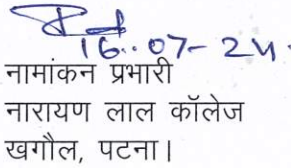 16..07-24.
नामांकन प्रभारी
नारायण लाल कॉलेज
खगौल, पटना।